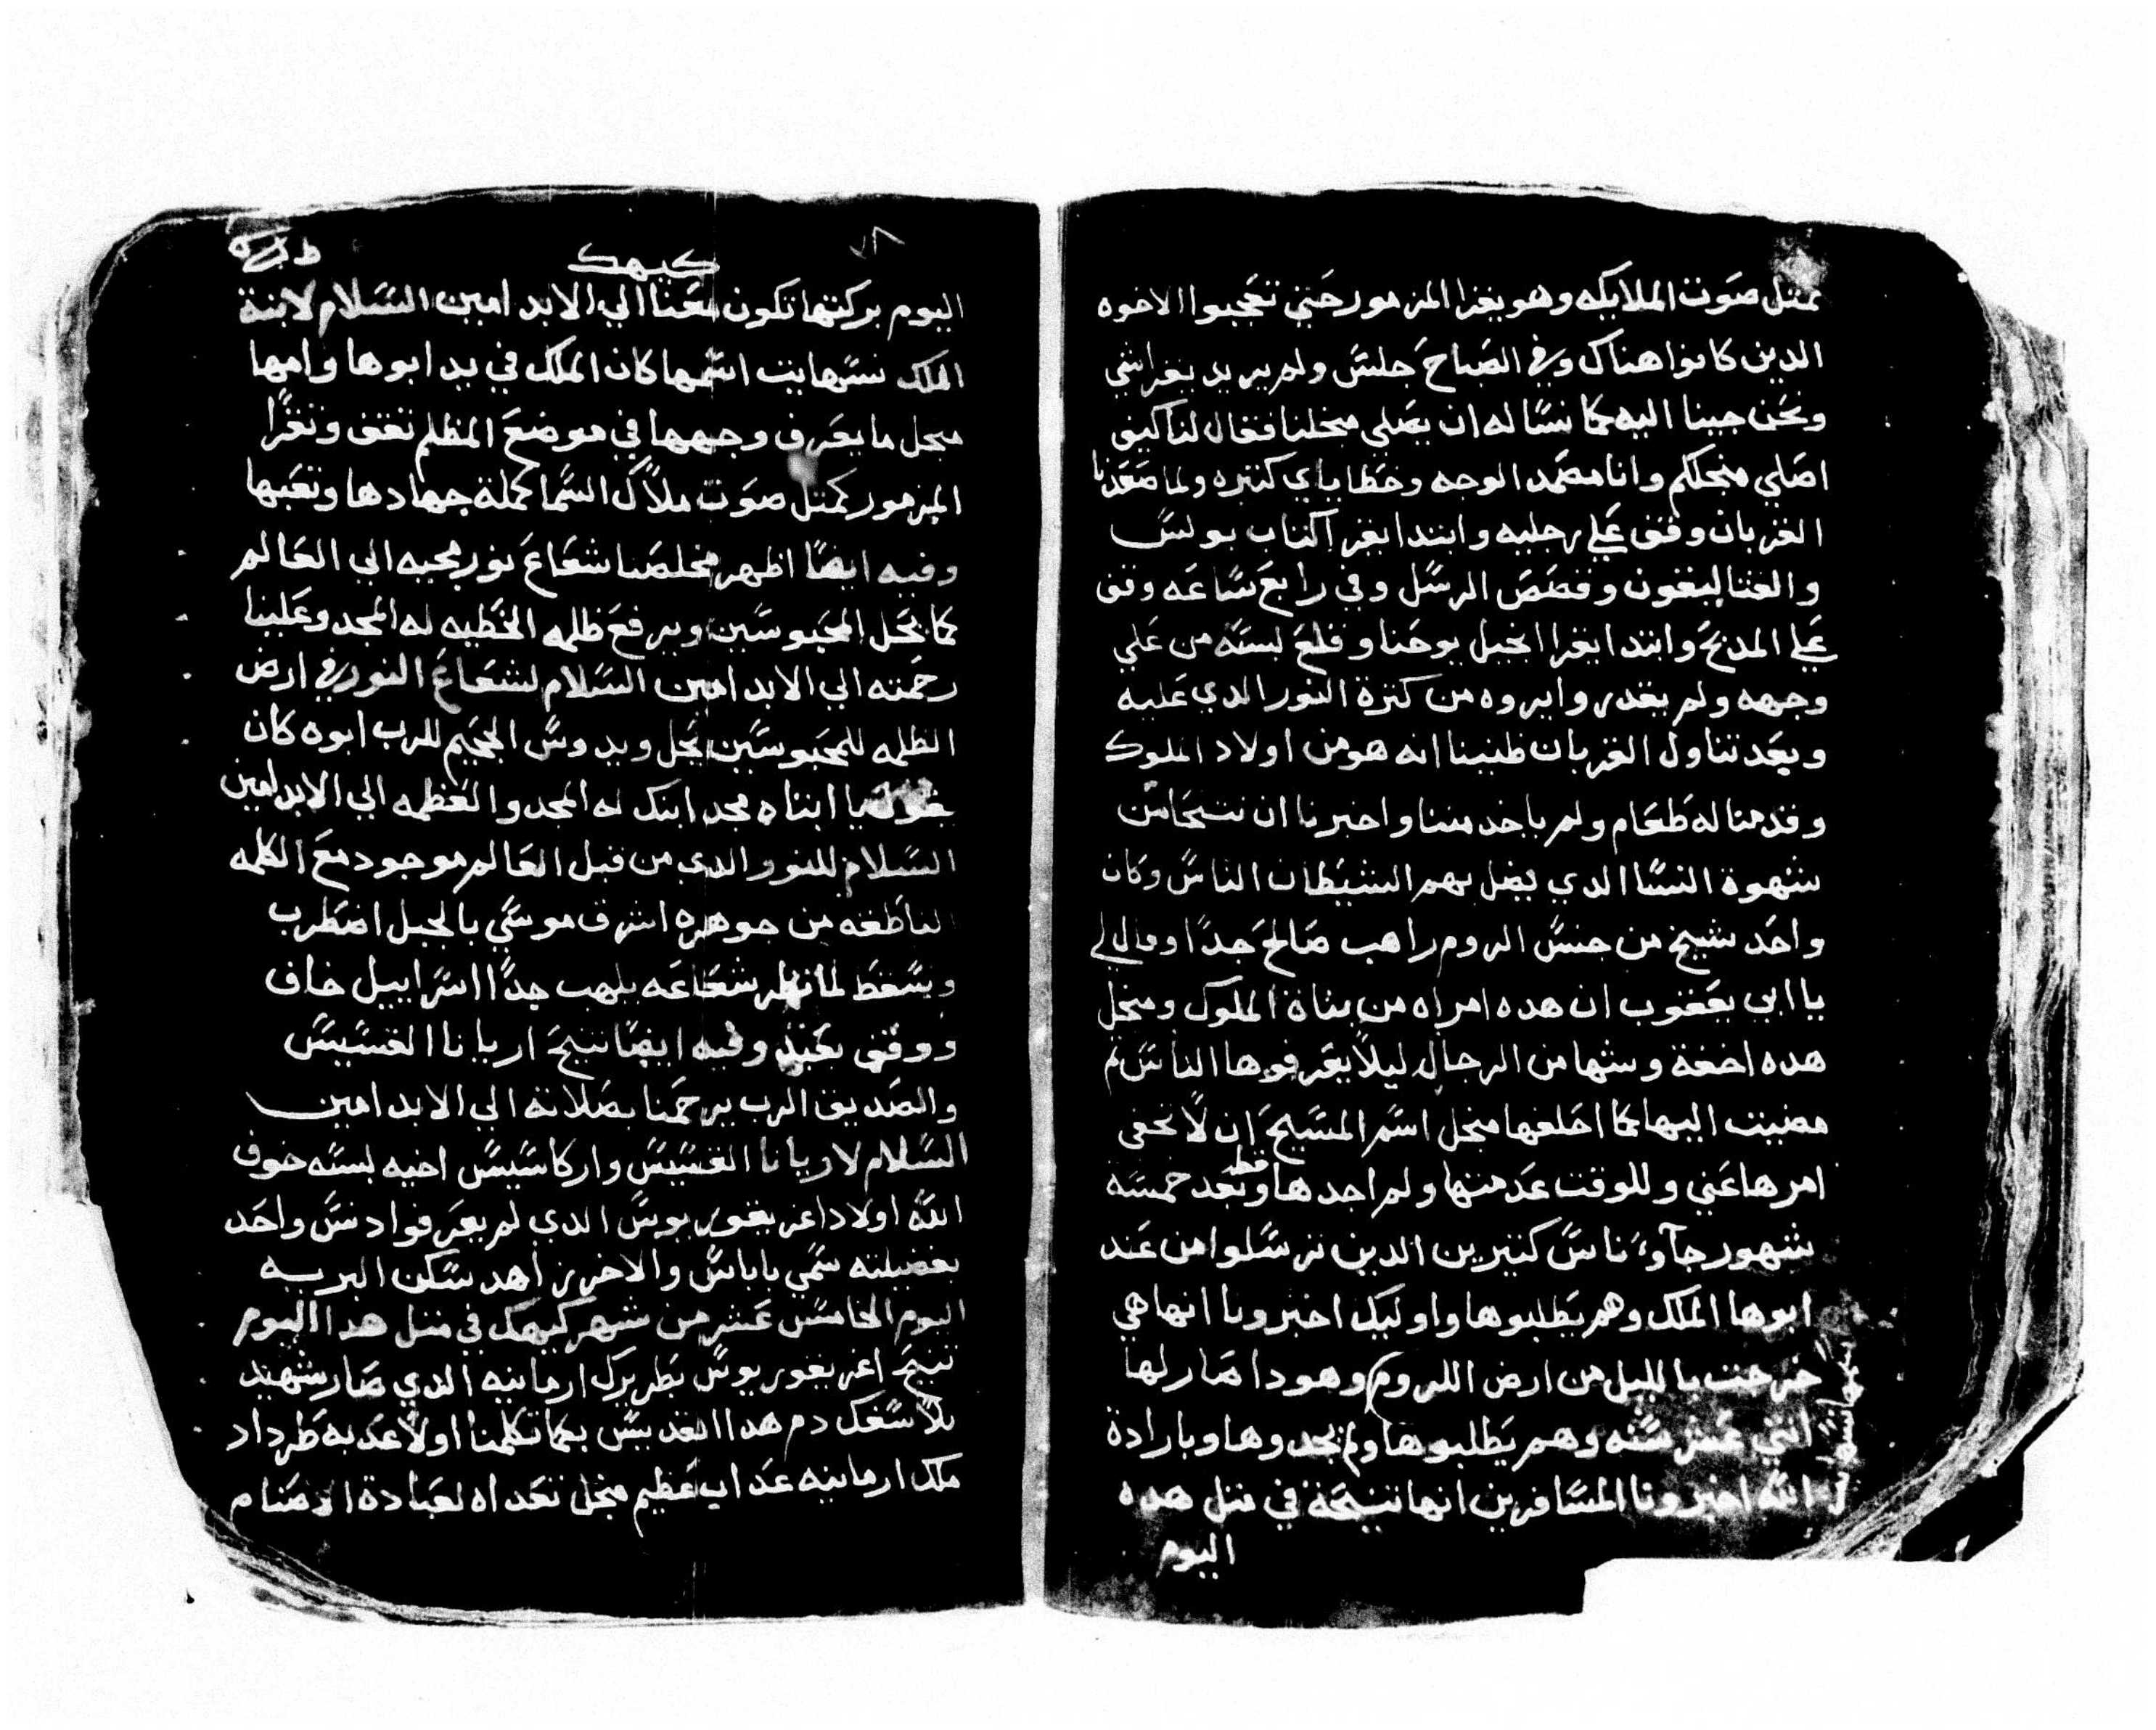 بمثل صوت الملايكه وهو يقرا المزمور حتي تعجبوا الاخوه
الدين كانوا هناك وفي الصباح جلس ولم يريد يقرا شي
ونحن جينا اليه كما نساله ان يصلي منجلنا فقال لنا كيف
اصلي منجلكم وانا مضمد الوجه وخطاياي كتيره ولما صعدنا
القربان وقف علي رجليه وابتدا يقرا كتاب بولس
والقتاليقون وقصص الرسل وفي رابع ساعه وقف
علي المدبح وابتدا يقرا انجيل يوحنا وقلع لبسته من علي
وجهه ولم يقدروا يروه من كترة النور الدي عليه
وبعد تناول القربان ظنينا انه هو من اولاد الملوك
وقدمنا له طعام ولم ياخد مننا واخبرنا ان نتحامي من
شهوة النسا الدي يضل بهم الشيطان الناس وكان
واحد شيخ من جنس الروم راهب صالح جدا وقال لي
يا ابي يعقوب ان هده امراه من بناة الملوك ومنجل
هده اخفة وشها من الرجال ليلا يعرفوها الناس تم
مضيت اليها كما احلفها منجل اسم المسيح ان لا تخفي
امرها عني وللوقت عدمتها ولم اجدها قط وبعد خمسه
شهور جاو ناس كتيرين الدين ترسلوا من عند
ابوها الملك وهم يطلبوها واوليك اخبرونا انها هي
خرجت بالليل من ارض الروم وهودا صار لها
اتني عشر سنه وهم يطلبوها ولم يجدوها وبارادة
الله اخبرونا المسافرين انها تنيحة في متل هده
اليوم
٧٨
كيهك
اليوم بركتها تكون معنا الي الابد امين السلام لابنة
الملك نسترهايت اسمها كان الملك في يد ابوها وامها
منجل ما يعرف وجهها في موضع المظلم تقف وتقرا
المزمور كمتل صوت ملاك السما كملة جهادها وتعبها
وفيه ايضا اظهر مخلصنا شعاع نور مجيه الي العالم
كما يحل المحبوسين ويرفع ظلمه الخطيه له المجد وعلينا
رحمته الي الابد امين السلام لشعاع النور في ارض
الظلمه للمحبوسين يحل ويدوس الجحيم للرب ابوه كان
يقول يا ابتاه مجد ابنك له المجد والعظمه الي الابد امين
السلام للنور الدي من قبل العالم موجود مع الكلمه
الناطقه من جوهره اشرف موسي بالجبل اضطرب
ويسقط لما نظر شعاعه يلهب جدا اسراييل خاف
ووقف بعيد وفيه ايضا تنيح اريانا القسيس
والصديق الرب يرحمنا بصلاته الي الابد امين
السلام لاريانا القسيس واركاسيس اخيه لبسته خوف
الله اولاد اغريغوريوس الدي لم يعرفوا دنس واحد
بفضيلته سمي باباس والاخر زاهد سكن البريه
اليوم الخامس عشر من شهر كيهك في متل هدا اليوم
تنيح اغريغوريوس بطريرك ارمانيه الدي صار شهيد
بلا سفك دم هدا القديس بكما تكلمنا اولا عدبه طرداد
ملك ارمانيه عداب عظيم منجل تعداه لعبادة الاصنام